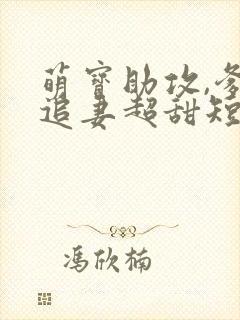 萌宝助攻,爹
追妻超甜短
冯欣楠